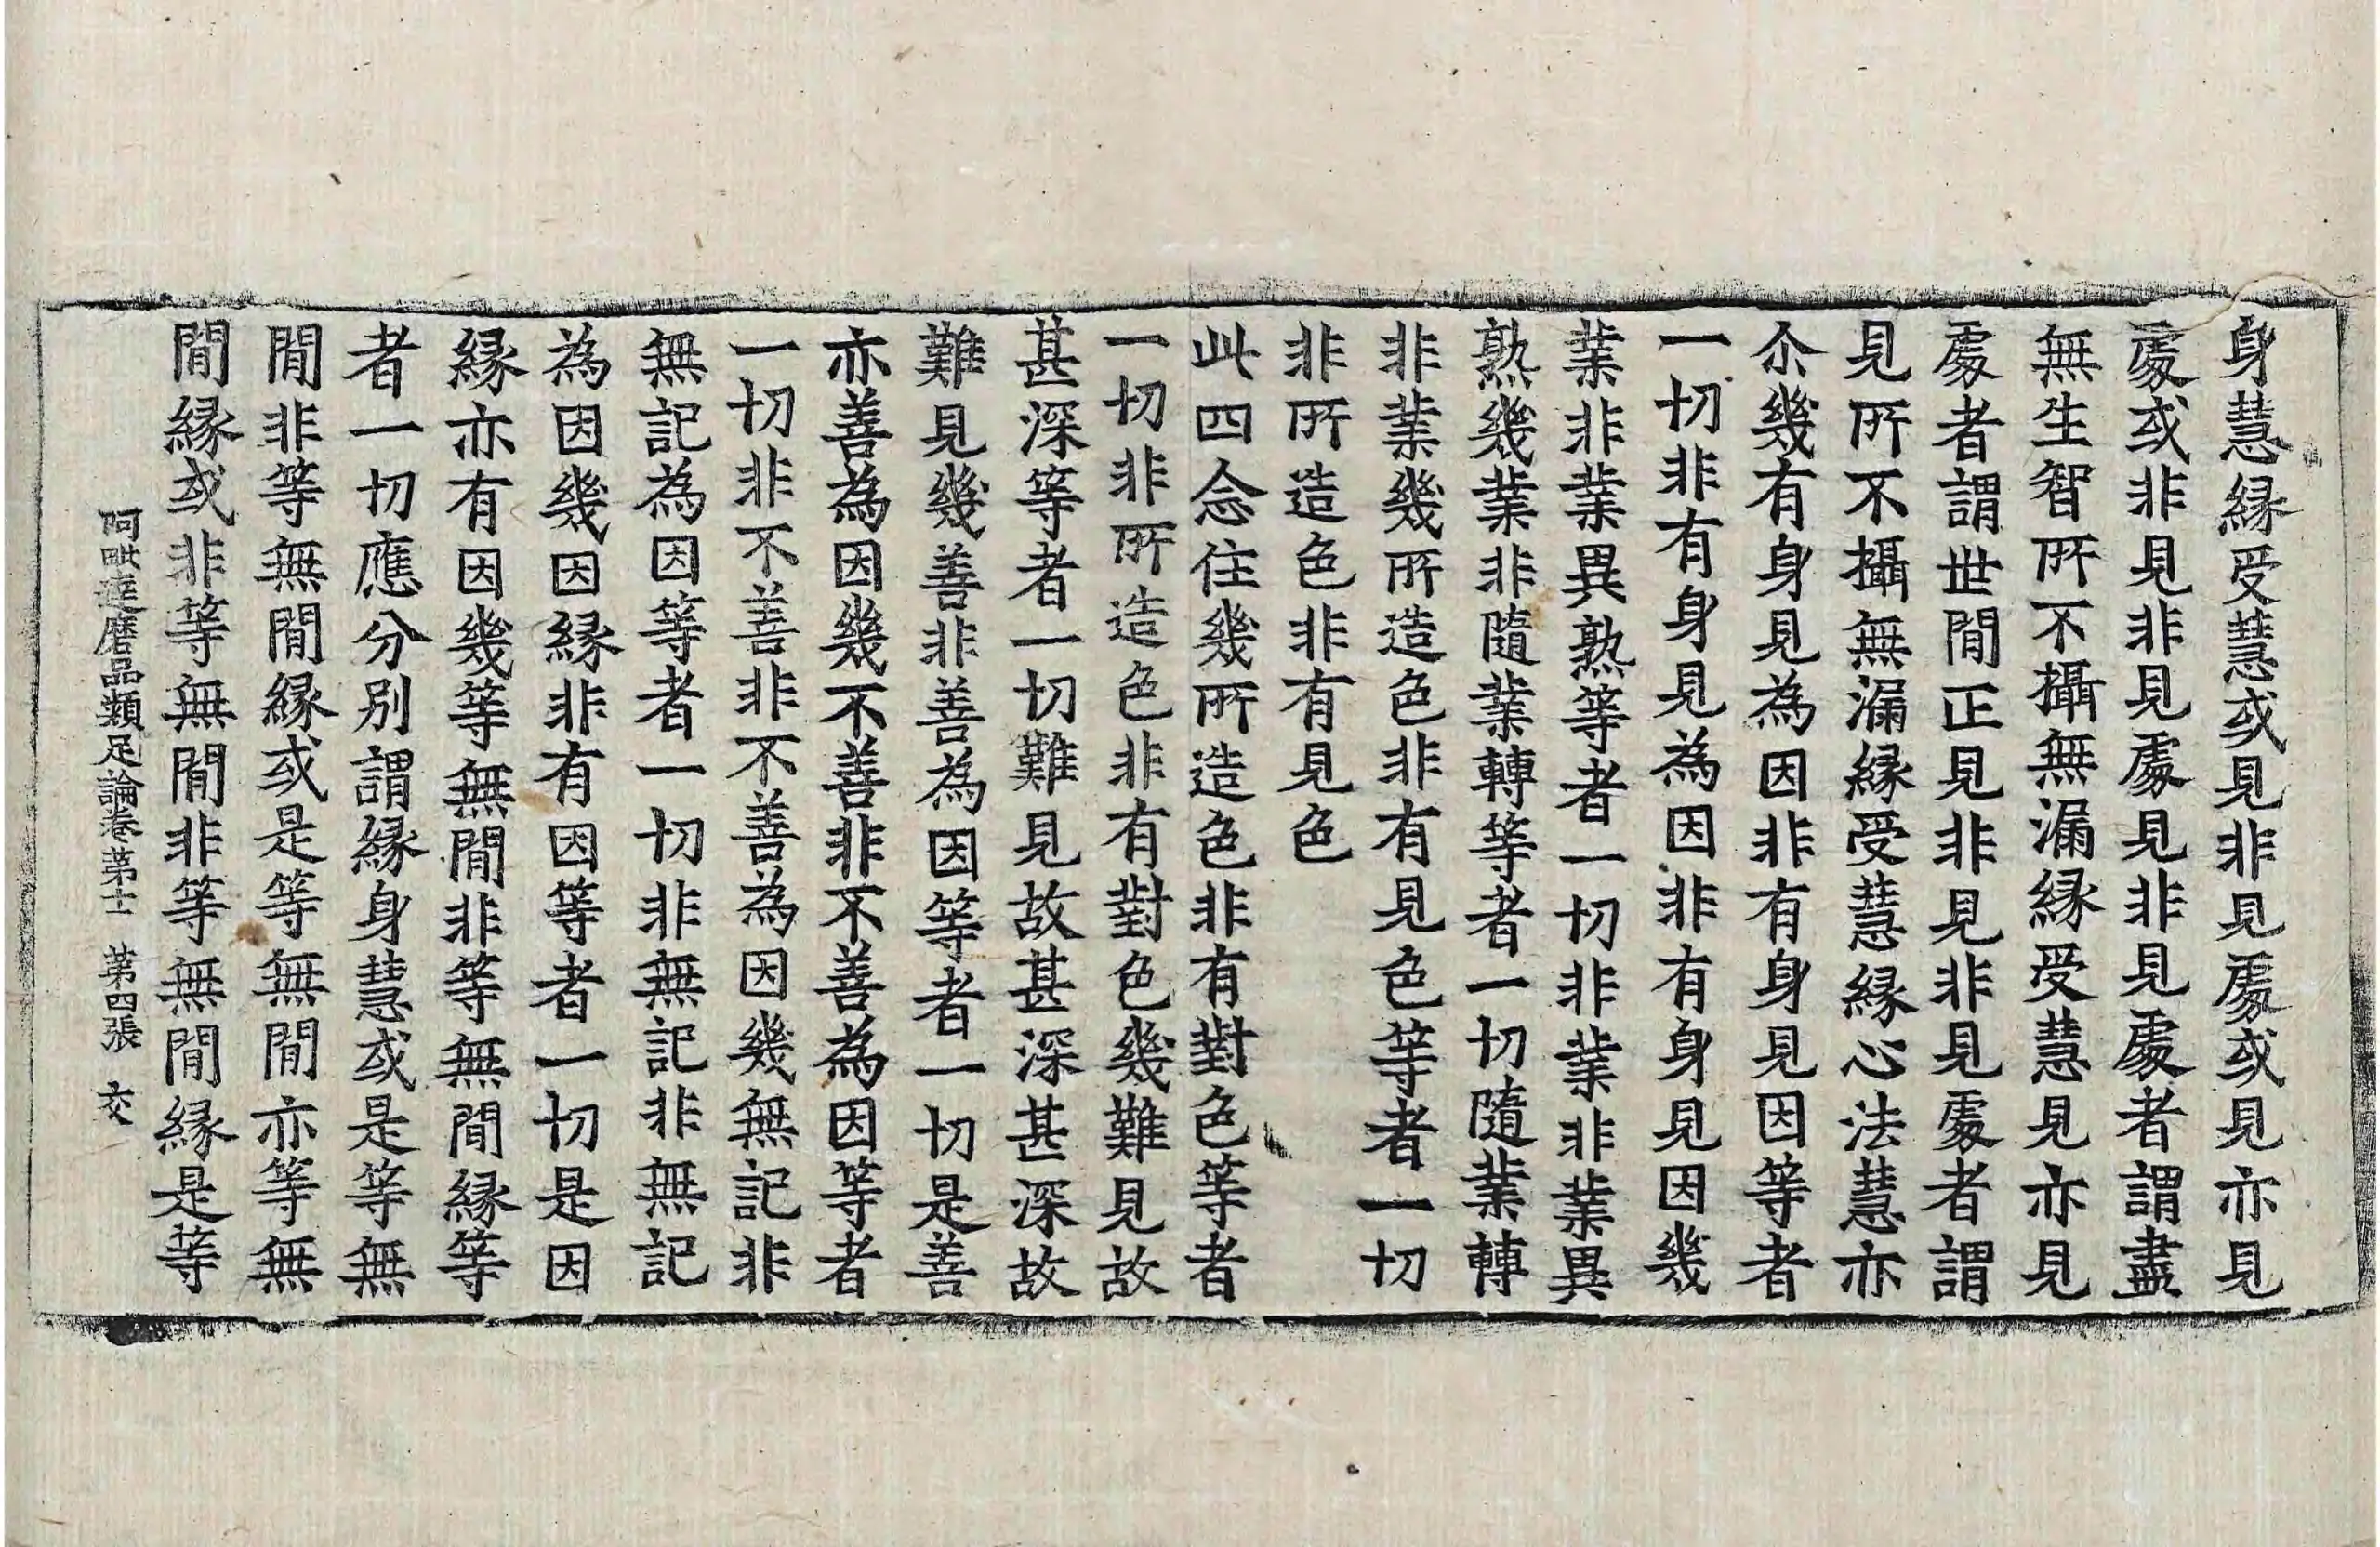 身慧縁受慧或見非見處或見亦見
處或非見非見處見非見處者謂盡
無生智所不攝無漏縁受慧見亦見
處者謂世間正見非見非見處者謂
見所不攝無漏縁受慧縁心法慧亦
尒幾有身見為因非有身見因等者
一切非有身見為因非有身見因幾
業非業異熟等者一切非業非業異
熟幾業非隨業轉等者一切隨業轉
非業幾所造色非有見色等者一切
非所造色非有見色
此四念住幾所造色非有對色等者
一切非所造色非有對色幾難見故
甚深等者一切難見故甚深甚深故
難見幾善非善為因等者一切是善
亦善為因幾不善非不善為因等者
一切非不善非不善為因幾無記非
無記為因等者一切非無記非無記
為因幾因縁非有因等者一切是因
縁亦有因幾等無間非等無間縁等
者一切應分別謂縁身慧或是等無
間非等無間縁或是等無間亦等無
間縁或非等無間非等無間縁是等
阿毗達磨品類足論卷第十一 第四張 交